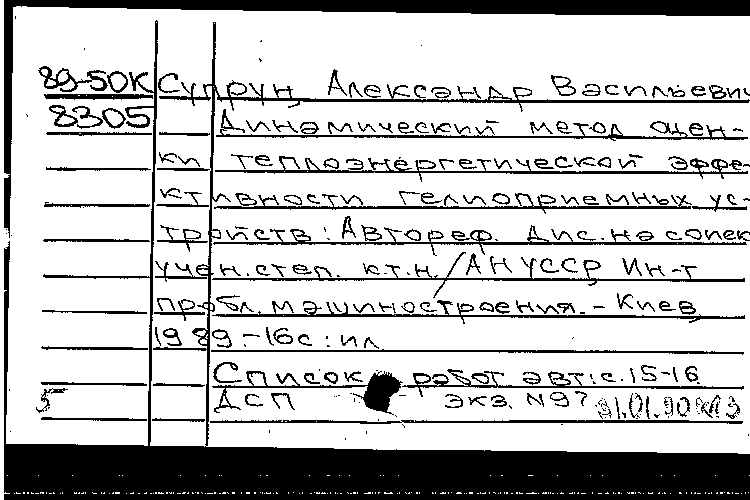 89-50К Супрун, Александр Васильевич
8305 Динамический метод оцен-
ки теплоэнергетической эффе-
ктивности гелиоприемных ус-
тройств: Автореф. дис. на соиск
учен. степ. к.т.н. / АН УССР Ин-т
пробл. машиностроения. - Киев,
1989. - 16с : ил
Список работ авт: с. 15-16
5 ДСП экз. N97 31.01.90